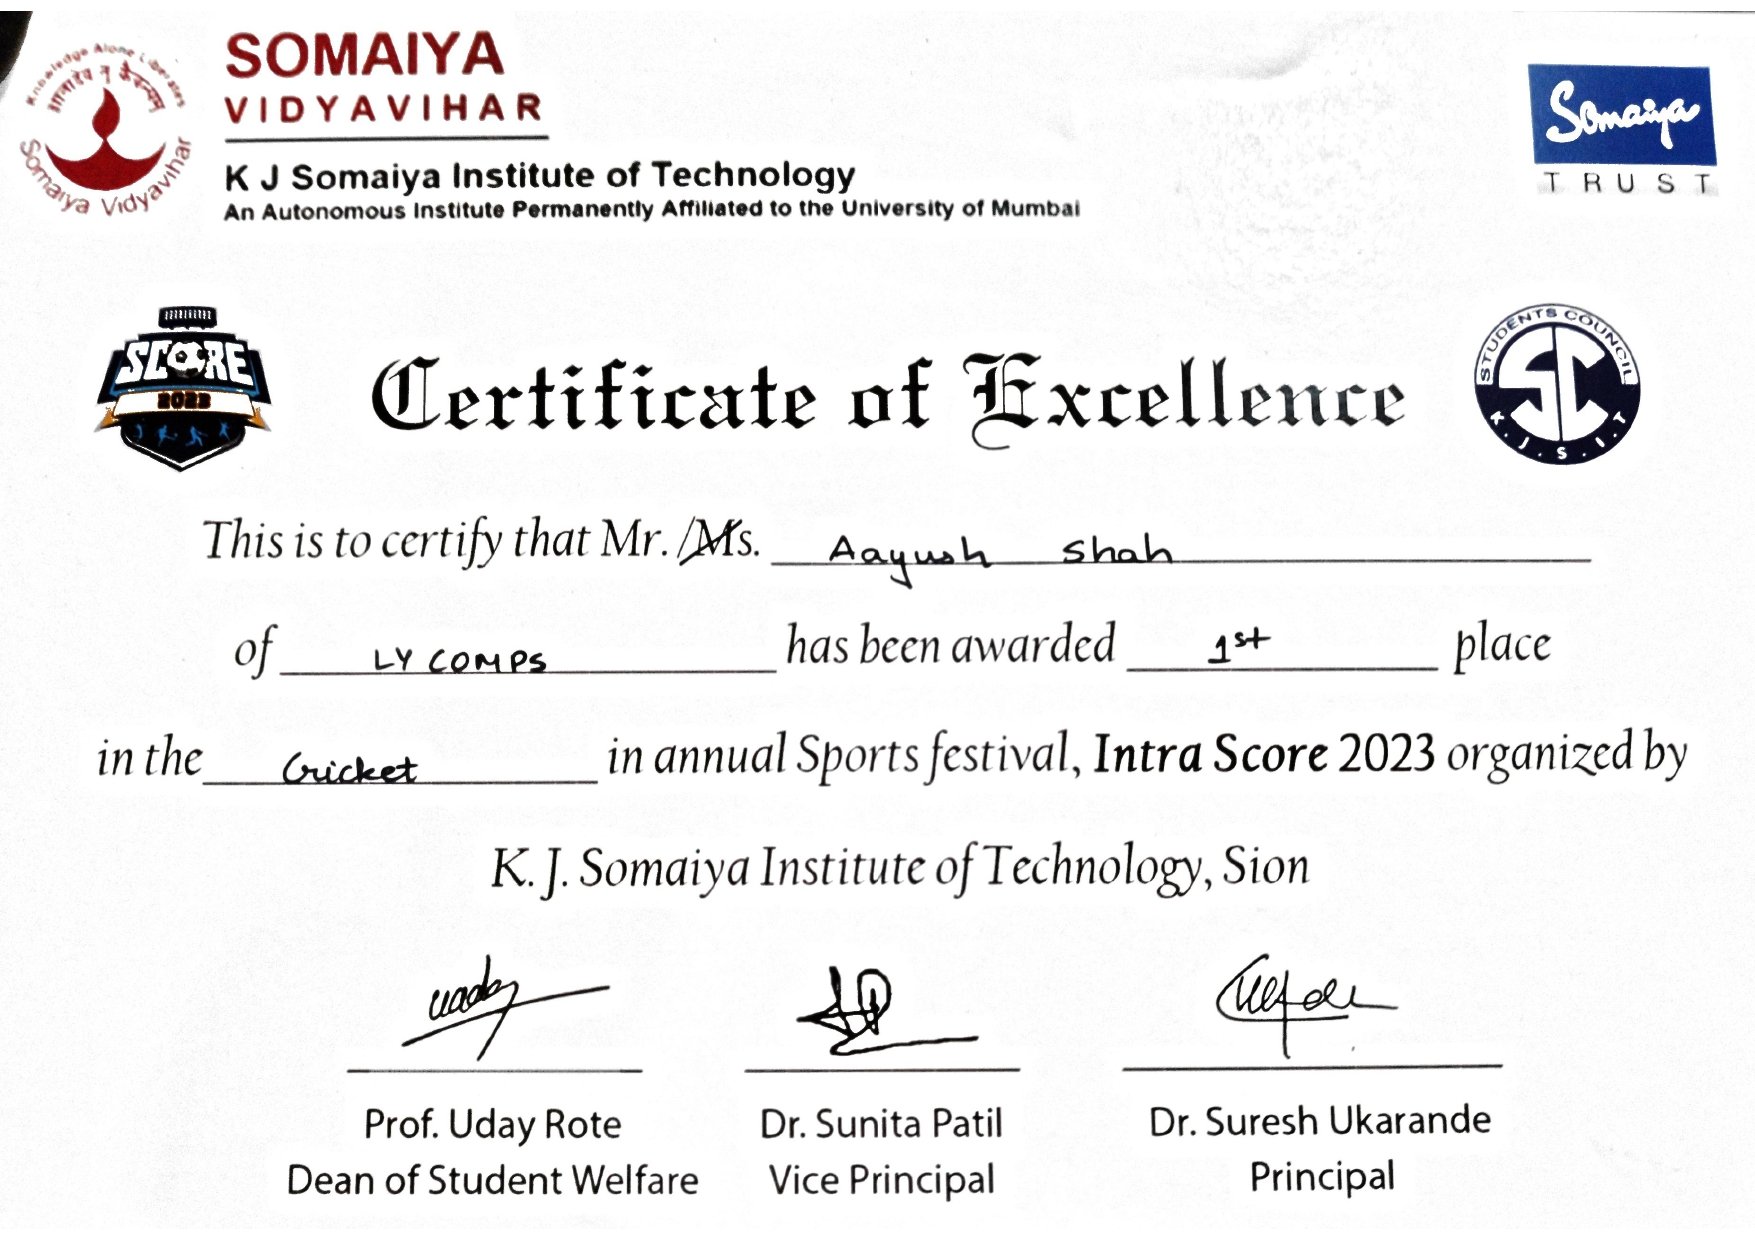 Knowledge Alone Liberates
ज्ञानादेव तु कैवल्यम्
Somaiya Vidyavihar
SOMAIYA
VIDYAVIHAR
K J Somaiya Institute of Technology
An Autonomous Institute Permanently Affiliated to the University of Mumbai
Somaiya
TRUST
SCORE
2023
Certificate of Excellence
STUDENTS COUNCIL
SC
K.J.S.I.T
This is to certify that Mr./Ms. Aayush Shah
of LY COMPS has been awarded 1st place
in the Cricket in annual Sports festival, Intra Score 2023 organized by
K. J. Somaiya Institute of Technology, Sion
Prof. Uday Rote
Dean of Student Welfare
Dr. Sunita Patil
Vice Principal
Dr. Suresh Ukarande
Principal